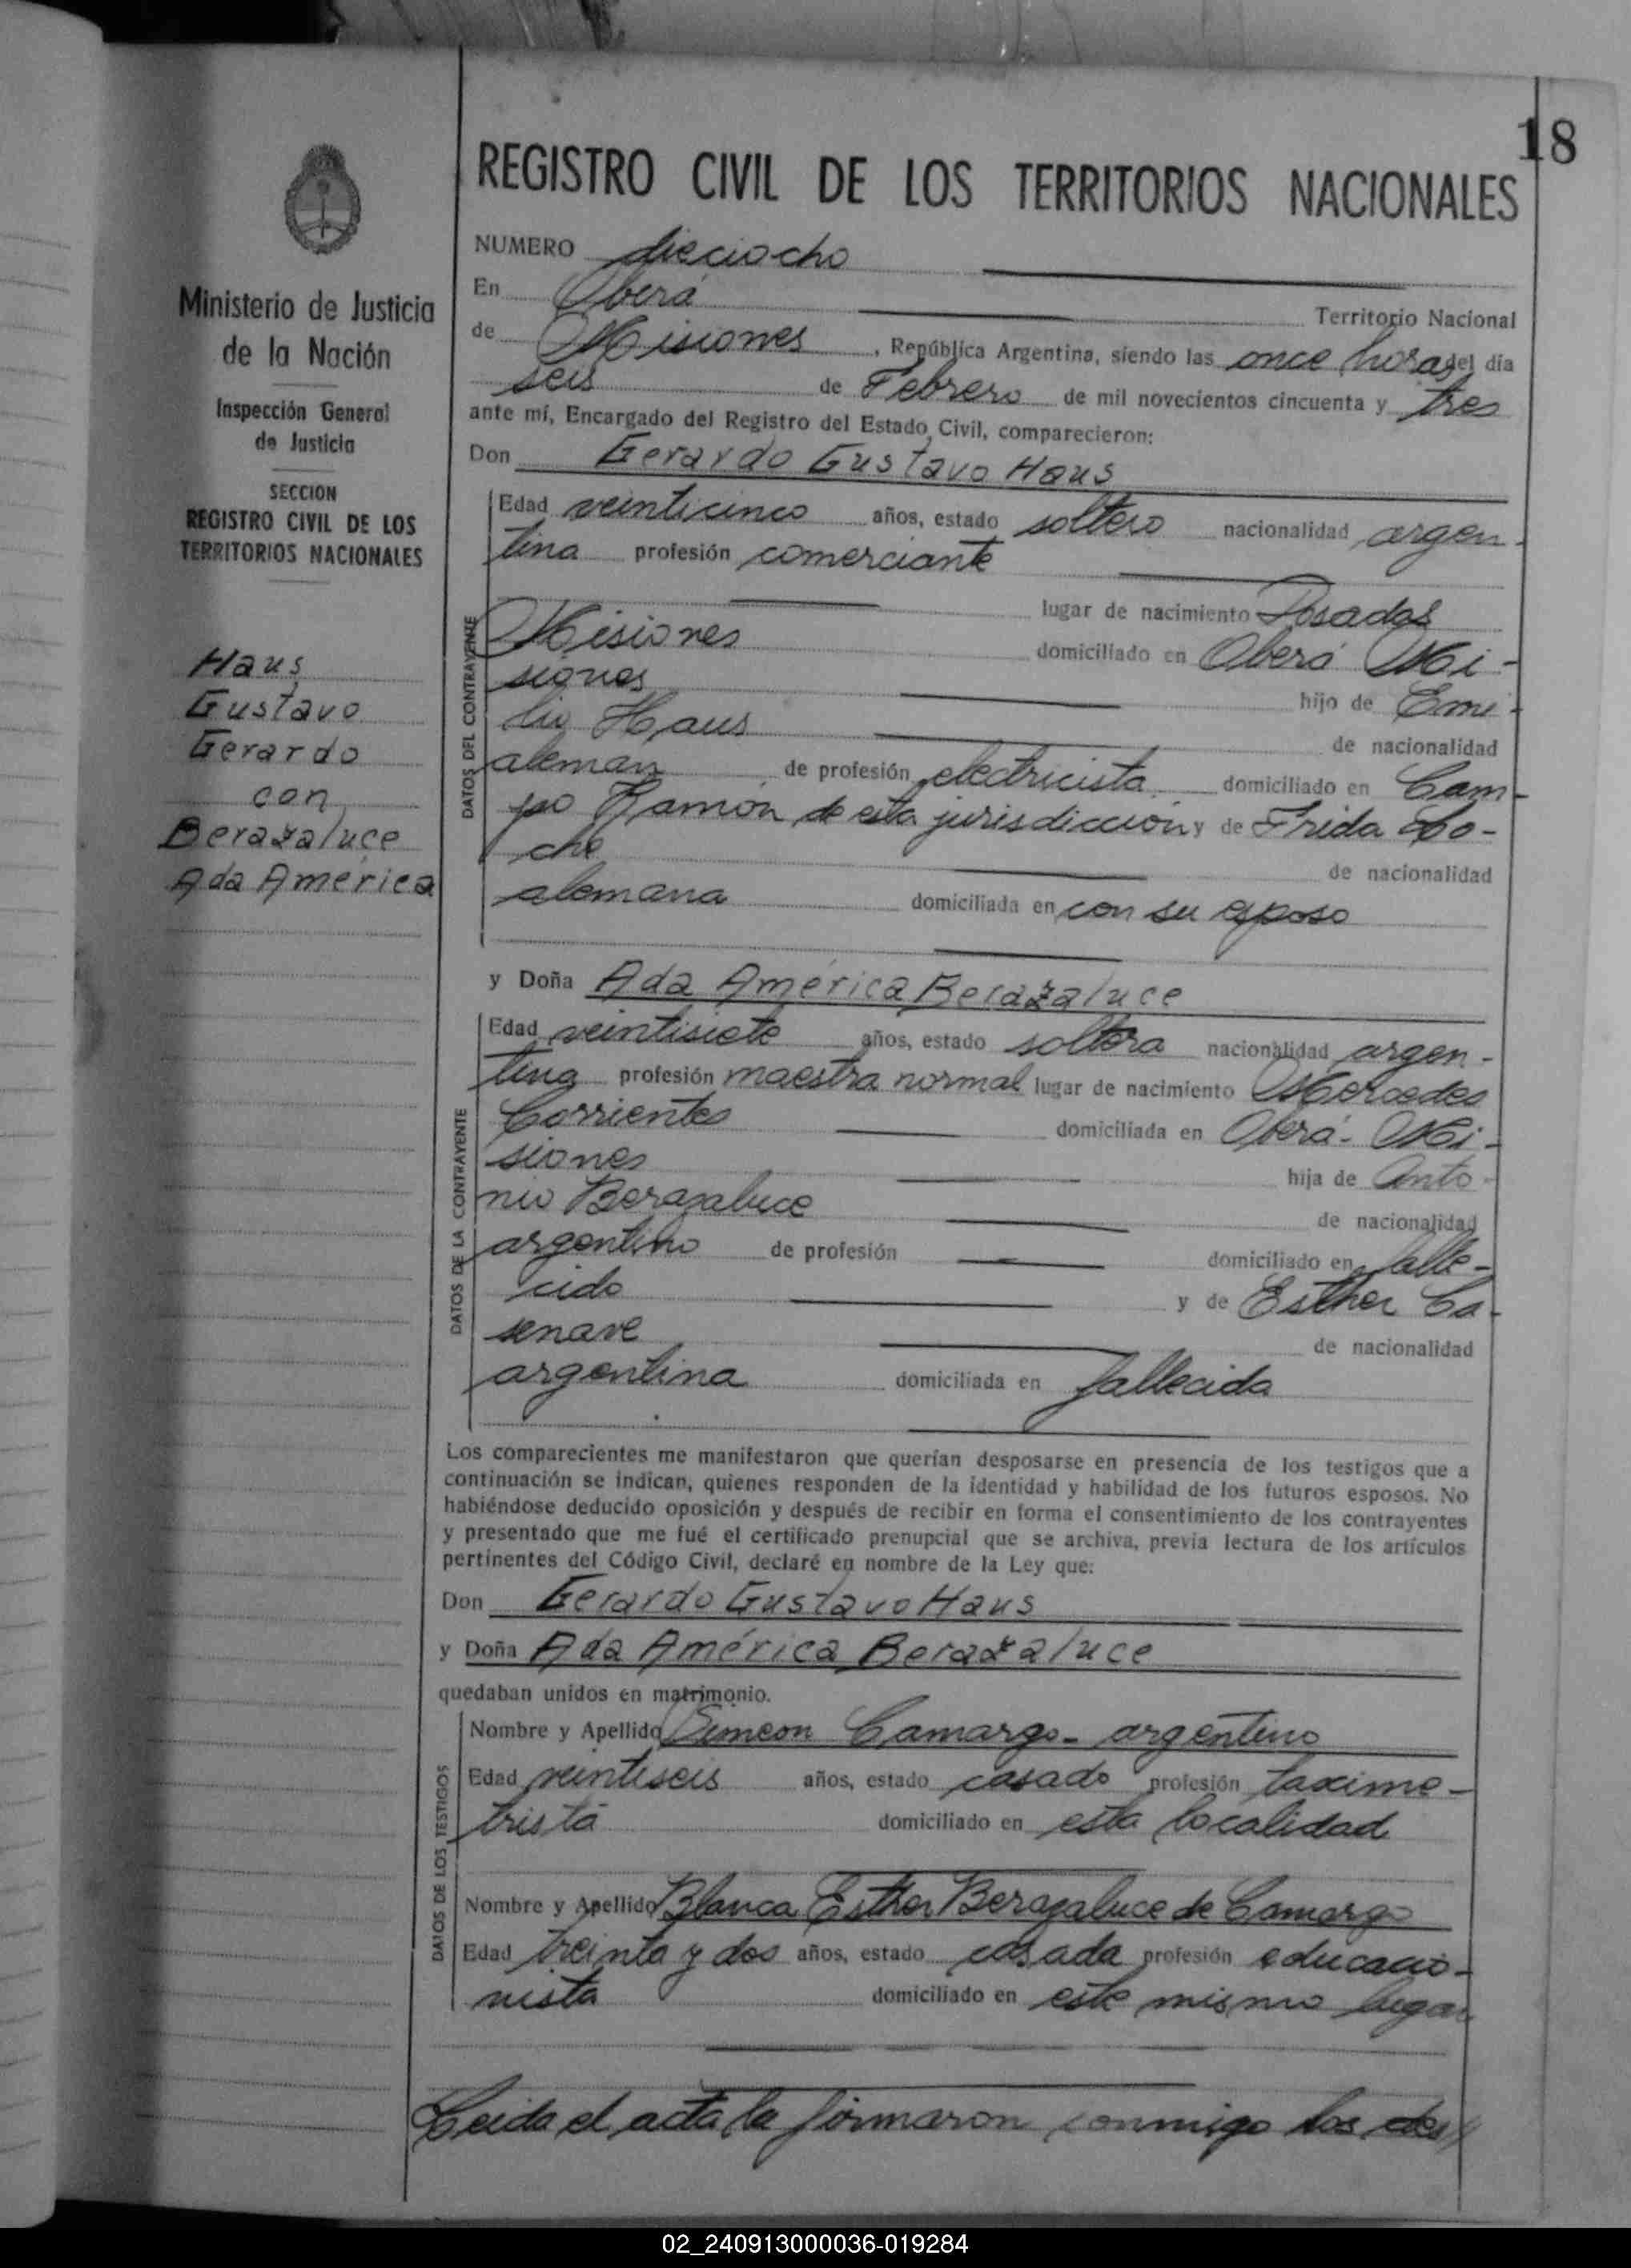 18
REGISTRO CIVIL DE LOS TERRITORIOS NACIONALES
Ministerio de Justicia
de la Nación
Inspección General
de Justicia
SECCION
REGISTRO CIVIL DE LOS
TERRITORIOS NACIONALES
Haus
Gustavo
Gerardo
con
Berazaluce
Ada América
NUMERO dieciocho
En Oberá Territorio Nacional
de Misiones, República Argentina, siendo las once horas del día
seis de Febrero de mil novecientos cincuenta y tres
ante mí, Encargado del Registro del Estado Civil, comparecieron:
Don Gerardo Gustavo Haus
DATOS DEL CONTRAYENTE
Edad veinticinco años, estado soltero nacionalidad argen-
tina profesión comerciante
lugar de nacimiento Posadas
Misiones domiciliado en Oberá Mi-
siones hijo de Emi-
lio Haus de nacionalidad
aleman de profesión electricista domiciliado en Cam-
po Ramón de esta jurisdicción y de Frida
che de nacionalidad
alemana domiciliada en con su esposo
y Doña Ada América Berazaluce
DATOS DE LA CONTRAYENTE
Edad veintisiete años, estado soltera nacionalidad argen-
tina profesión maestra normal lugar de nacimiento Mercedes
Corrientes domiciliada en Oberá- Mi-
siones hija de Anto-
nio Berazaluce de nacionalidad
argentino de profesión domiciliado en falle-
cido y de Esther Ca-
senave de nacionalidad
argentina domiciliada en fallecida
Los comparecientes me manifestaron que querían desposarse en presencia de los testigos que a
continuación se indican, quienes responden de la identidad y habilidad de los futuros esposos. No
habiéndose deducido oposición y después de recibir en forma el consentimiento de los contrayentes
y presentado que me fué el certificado prenupcial que se archiva, previa lectura de los artículos
pertinentes del Código Civil, declaré en nombre de la Ley que:
Don Gerardo Gustavo Haus
y Doña Ada América Berazaluce
quedaban unidos en matrimonio.
DATOS DE LOS TESTIGOS
Nombre y Apellido Simeon Camargo- argentino
Edad veintiseis años, estado casado profesión taxime-
trista domiciliado en esta localidad
Nombre y Apellido Blanca Esther Berazaluce de Camargo
Edad treinta y dos años, estado casada profesión educacio-
nista domiciliado en este mismo lugar
Leida el acta la firmaron conmigo los
02_240913000036-019284